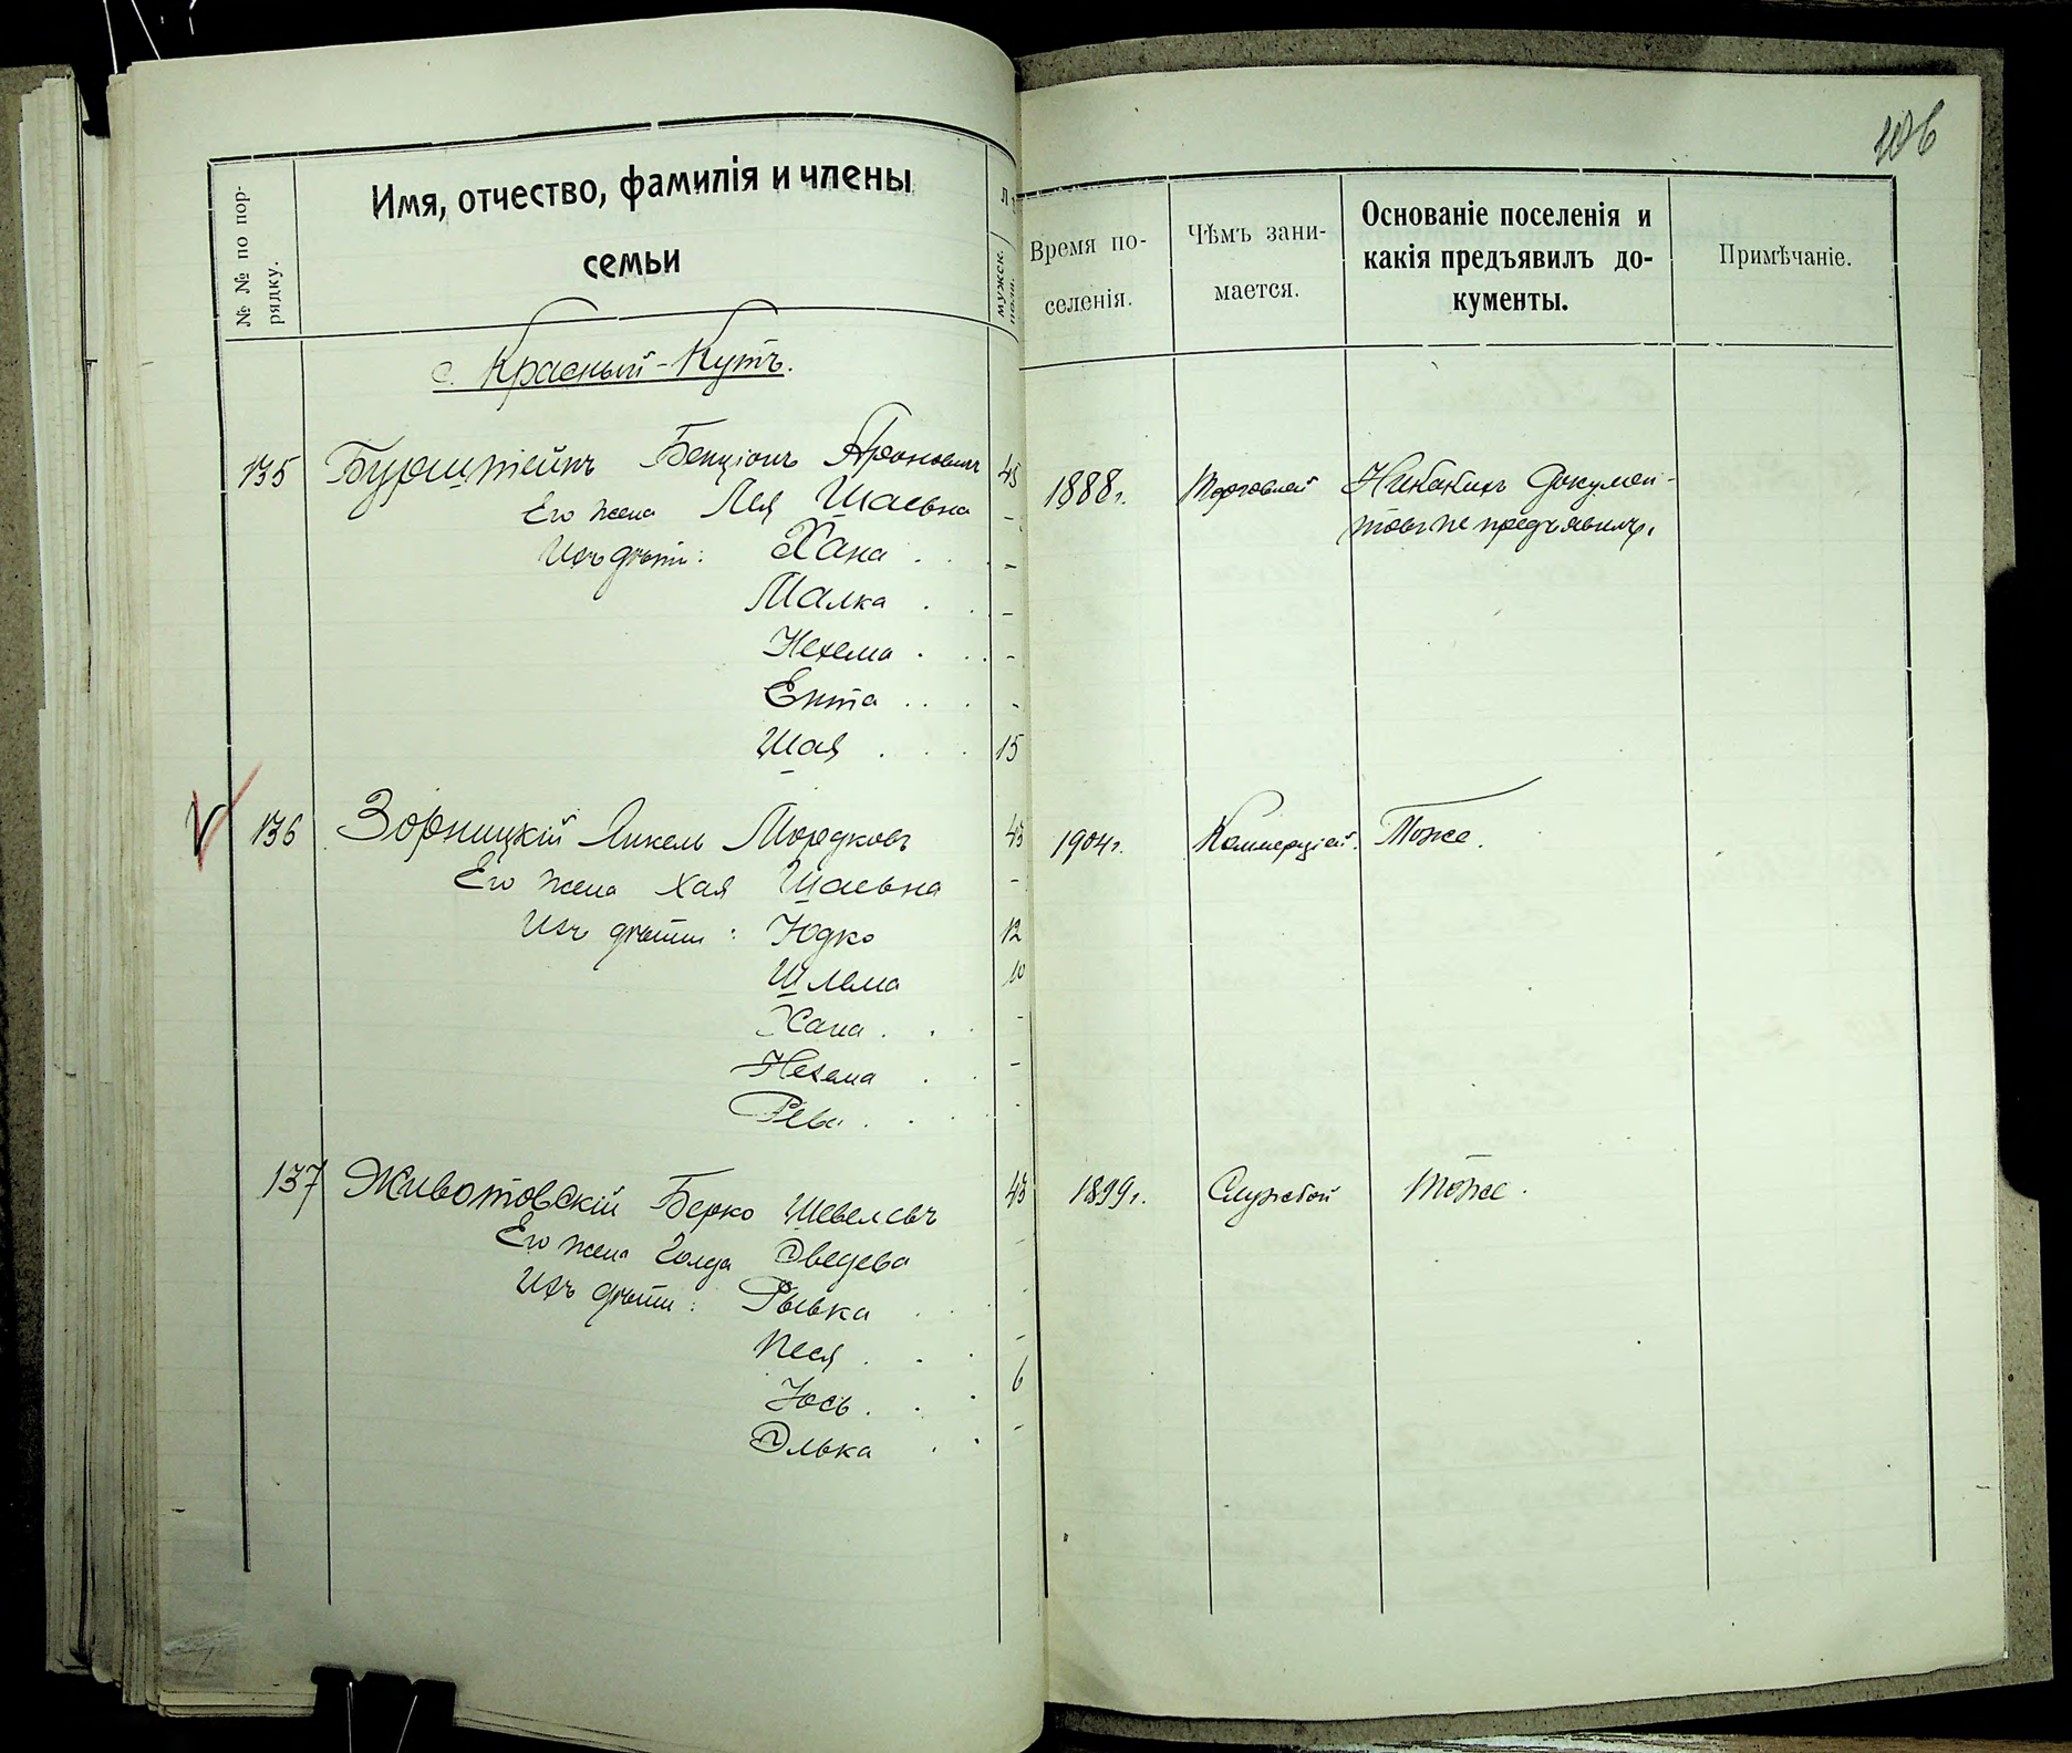 106
№ № по пор-
рядку.
Имя, отчество, фамилія и члены
семьи
мужск.
пола.
Время по-
селенія.
Чѣмъ зани-
мается.
Основаніе поселенія и
какія предъявилъ до-
кументы.
Примѣчаніе.
с. Красный-Кутъ.
135 Бурштейнъ Бенціонъ Ароновичъ 45 1888 г. Торговлей Никакихъ докумен-
товъ не предъявилъ.
Его жена Лея Шаевна -
Ихъ дѣти: Хана . . -
Малка . . -
Нехема . . . -
Ента . . . -
Шая . . . 15
136 Зорницкій Янкель Мордковъ 43 1904 г. Коммерціей. Тоже.
Его жена Хая Шаевна -
Ихъ дѣти: Юдко 12
Шлема 10
Хана . . -
Нехама . . -
Рева . . -
137 Животовскій Берко Шевелевъ 43 1899 г. Службой Тоже.
Его жена Голда Дведева -
Ихъ дѣти: Рывка . . -
Песя . . . -
Юсь . . . 6
Элька . . -